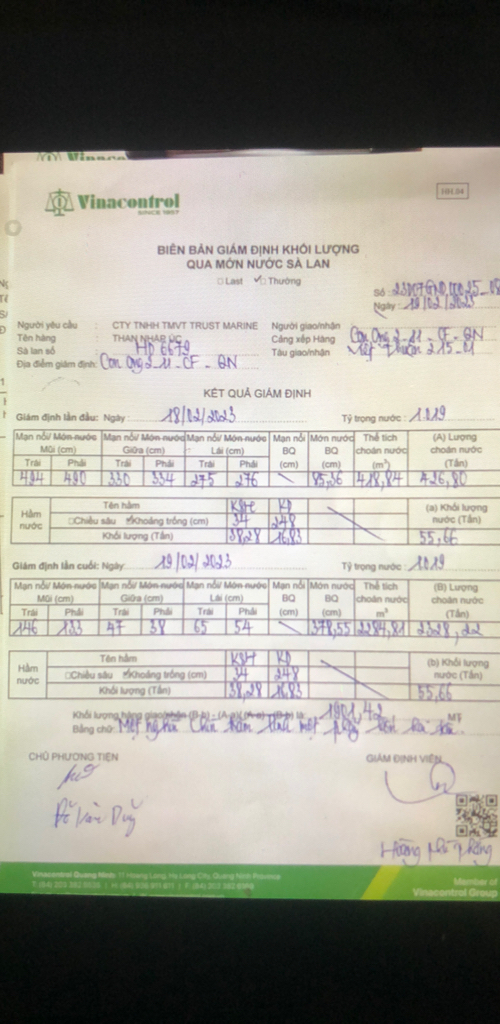 Vinacontrol
SINCE 1957
HH.04
BIÊN BẢN GIÁM ĐỊNH KHỐI LƯỢNG
QUA MỚN NƯỚC SÀ LAN
Last Thường
Số:
Ngày: 19/02/2023
Người yêu cầu : CTY TNHH TMVT TRUST MARINE
Người giao/nhận
Tên hàng : THAN NHẬP ÚC
Cảng xếp Hàng : Con Ong 2-11-CF-QN
Sà lan số : HD 6679
Tàu giao/nhận : 215-01
Địa điểm giám định: Con Ong 2-11-CF-QN
KẾT QUẢ GIÁM ĐỊNH
Giám định lần đầu: Ngày 18/02/2023 Tỷ trọng nước: 1.019
Mạn nổi/ Món nước Mũi (cm) Mạn nổi/ Món nước Giữa (cm) Mạn nổi/ Món nước Lái (cm) Mạn nổi BQ (cm) Món nước BQ (cm) Thể tích choán nước (m³) (A) Lượng choán nước (Tấn)
Trái Phải Trái Phải Trái Phải
494 490 330 334 275 276 85,36 418,84 426,80
Hầm nước Tên hầm KSH KĐ (a) Khối lượng nước (Tấn)
Chiều sâu Khoảng trống (cm) 34 248
Khối lượng (Tấn) 38,28 16,83 55,66
Giám định lần cuối: Ngày 19/02/2023 Tỷ trọng nước: 1.019
Mạn nổi/ Món nước Mũi (cm) Mạn nổi/ Món nước Giữa (cm) Mạn nổi/ Món nước Lái (cm) Mạn nổi BQ (cm) Món nước BQ (cm) Thể tích choán nước m³ (B) Lượng choán nước (Tấn)
Trái Phải Trái Phải Trái Phải
146 133 47 38 65 54 378,55 2284,81 2328,22
Hầm nước Tên hầm KSH KĐ (b) Khối lượng nước (Tấn)
Chiều sâu Khoảng trống (cm) 34 248
Khối lượng (Tấn) 38,28 16,83 55,66
Khối lượng hàng giao/nhận (B-b) - (A-a)/(A-a) - (B-b) là: 1901,42 MT
Bằng chữ: Một nghìn chín trăm linh một phẩy bốn hai tấn.
CHỦ PHƯƠNG TIỆN GIÁM ĐỊNH VIÊN
Đỗ Văn Duy
Vinacontrol Quang Ninh: 11 Hoang Long, Ha Long City, Quang Ninh Province
Member of
Vinacontrol Group